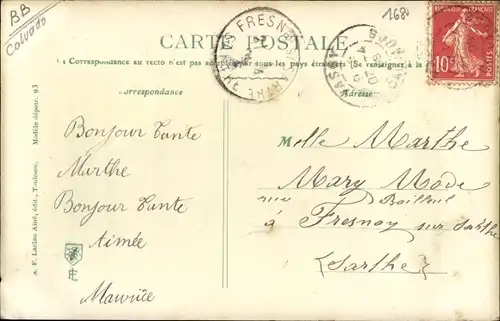 BB
Calvados
168
CARTE POSTALE
La Correspondance au recto n'est pas acceptée par tous les pays étrangers (Se renseigner à la
Correspondance
Adresse
RÉPUBLIQUE FRANÇAISE
10
POSTES
FRESNAY
SARTHE
VASSY
Bonjour Tante
Marthe
Bonjour Tante
Aimée
Maurice
Melle Marthe
Mary Mode
rue Bailleul
à Fresnay sur Sarthe
(Sarthe)
A. F. Laclau Aîné, édit., Toulouse, Modèle déposé. 93